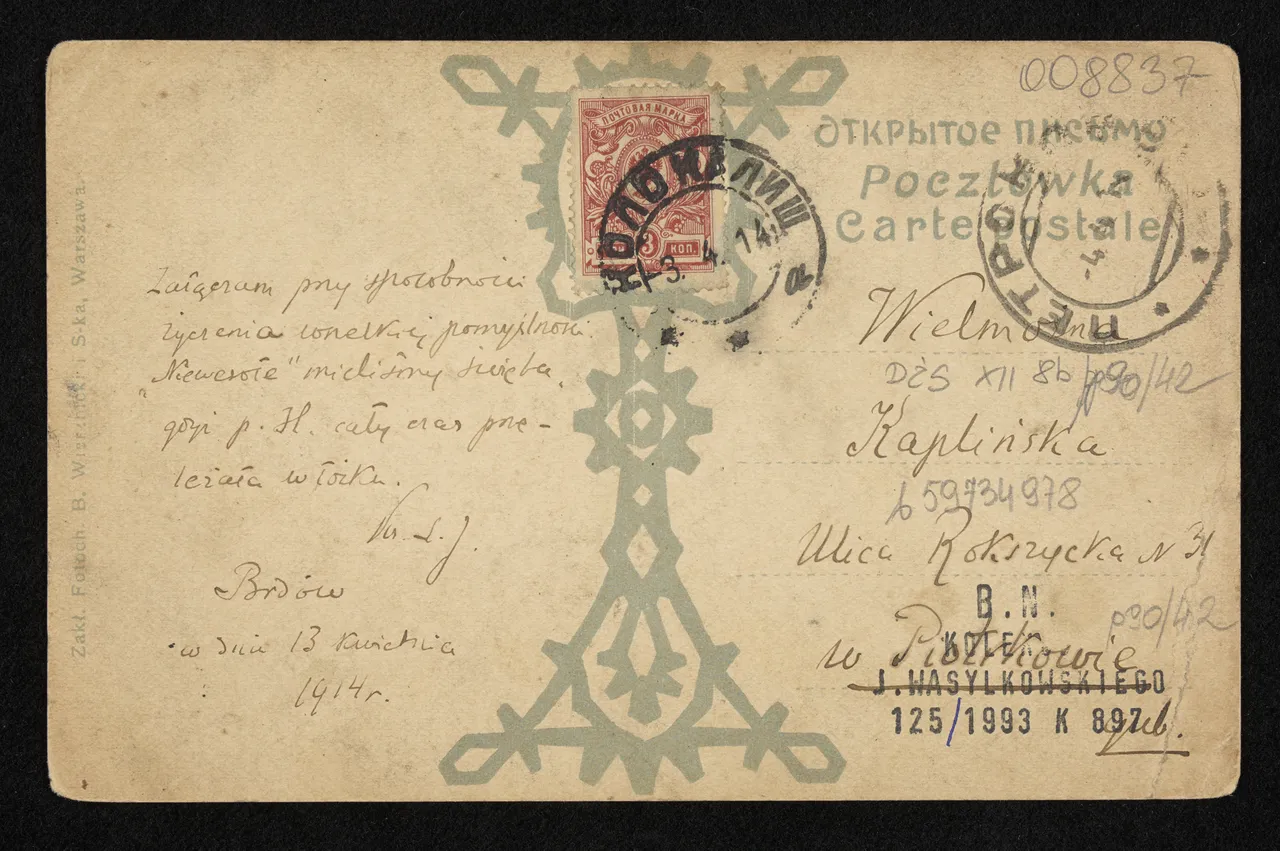 008837
ОТКРЫТОЕ ПИСЬМО
Pocztówka
Carte postale
ПОЧТОВАЯ МАРКА
3 КОП.
КОЛО КАЛИШ
3.4.14
ПЕТРОК
Załączam przy sposobności
życzenia wszelkiej pomyślności
"Niewesołe" mieliśmy święta,
gdyż p. H. cały czas prze-
leżała w łóżku.
Brdów
w dniu 13 kwietnia
1914 r.
Wielmożna
DŻS XII 8b/p90/42
Kaplińska
b 59734978
Ulica Rokszycka N 31
B.N.
p90/42
w Piotrkowie
KOLEK.
J.WASYLKOWSKIEGO
125/1993 K 897
gub.
Zakł. Fotoch. B. Wierzbicki i S-ka, Warszawa.